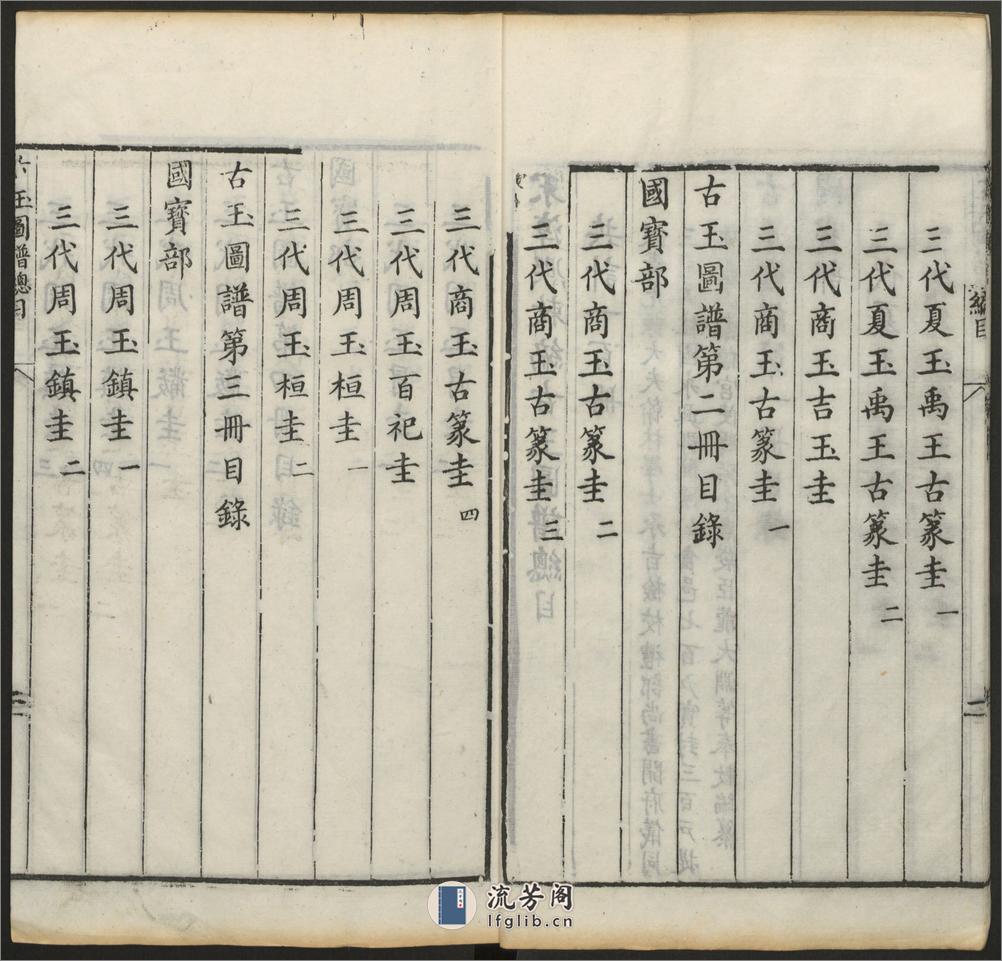 三代夏玉禹王古篆圭一
三代夏玉禹王古篆圭二
三代商玉吉玉圭
三代商玉古篆圭一
古玉圖譜第二冊目錄
國寶部
三代商玉古篆圭二
三代商玉古篆圭三
三代商玉古篆圭四
三代周玉百祀圭
三代周玉桓圭一
三代周玉桓圭二
古玉圖譜第三冊目錄
國寶部
三代周玉鎮圭一
三代周玉鎮圭二
玉圖譜總目
二
流芳阁
lfglib.cn